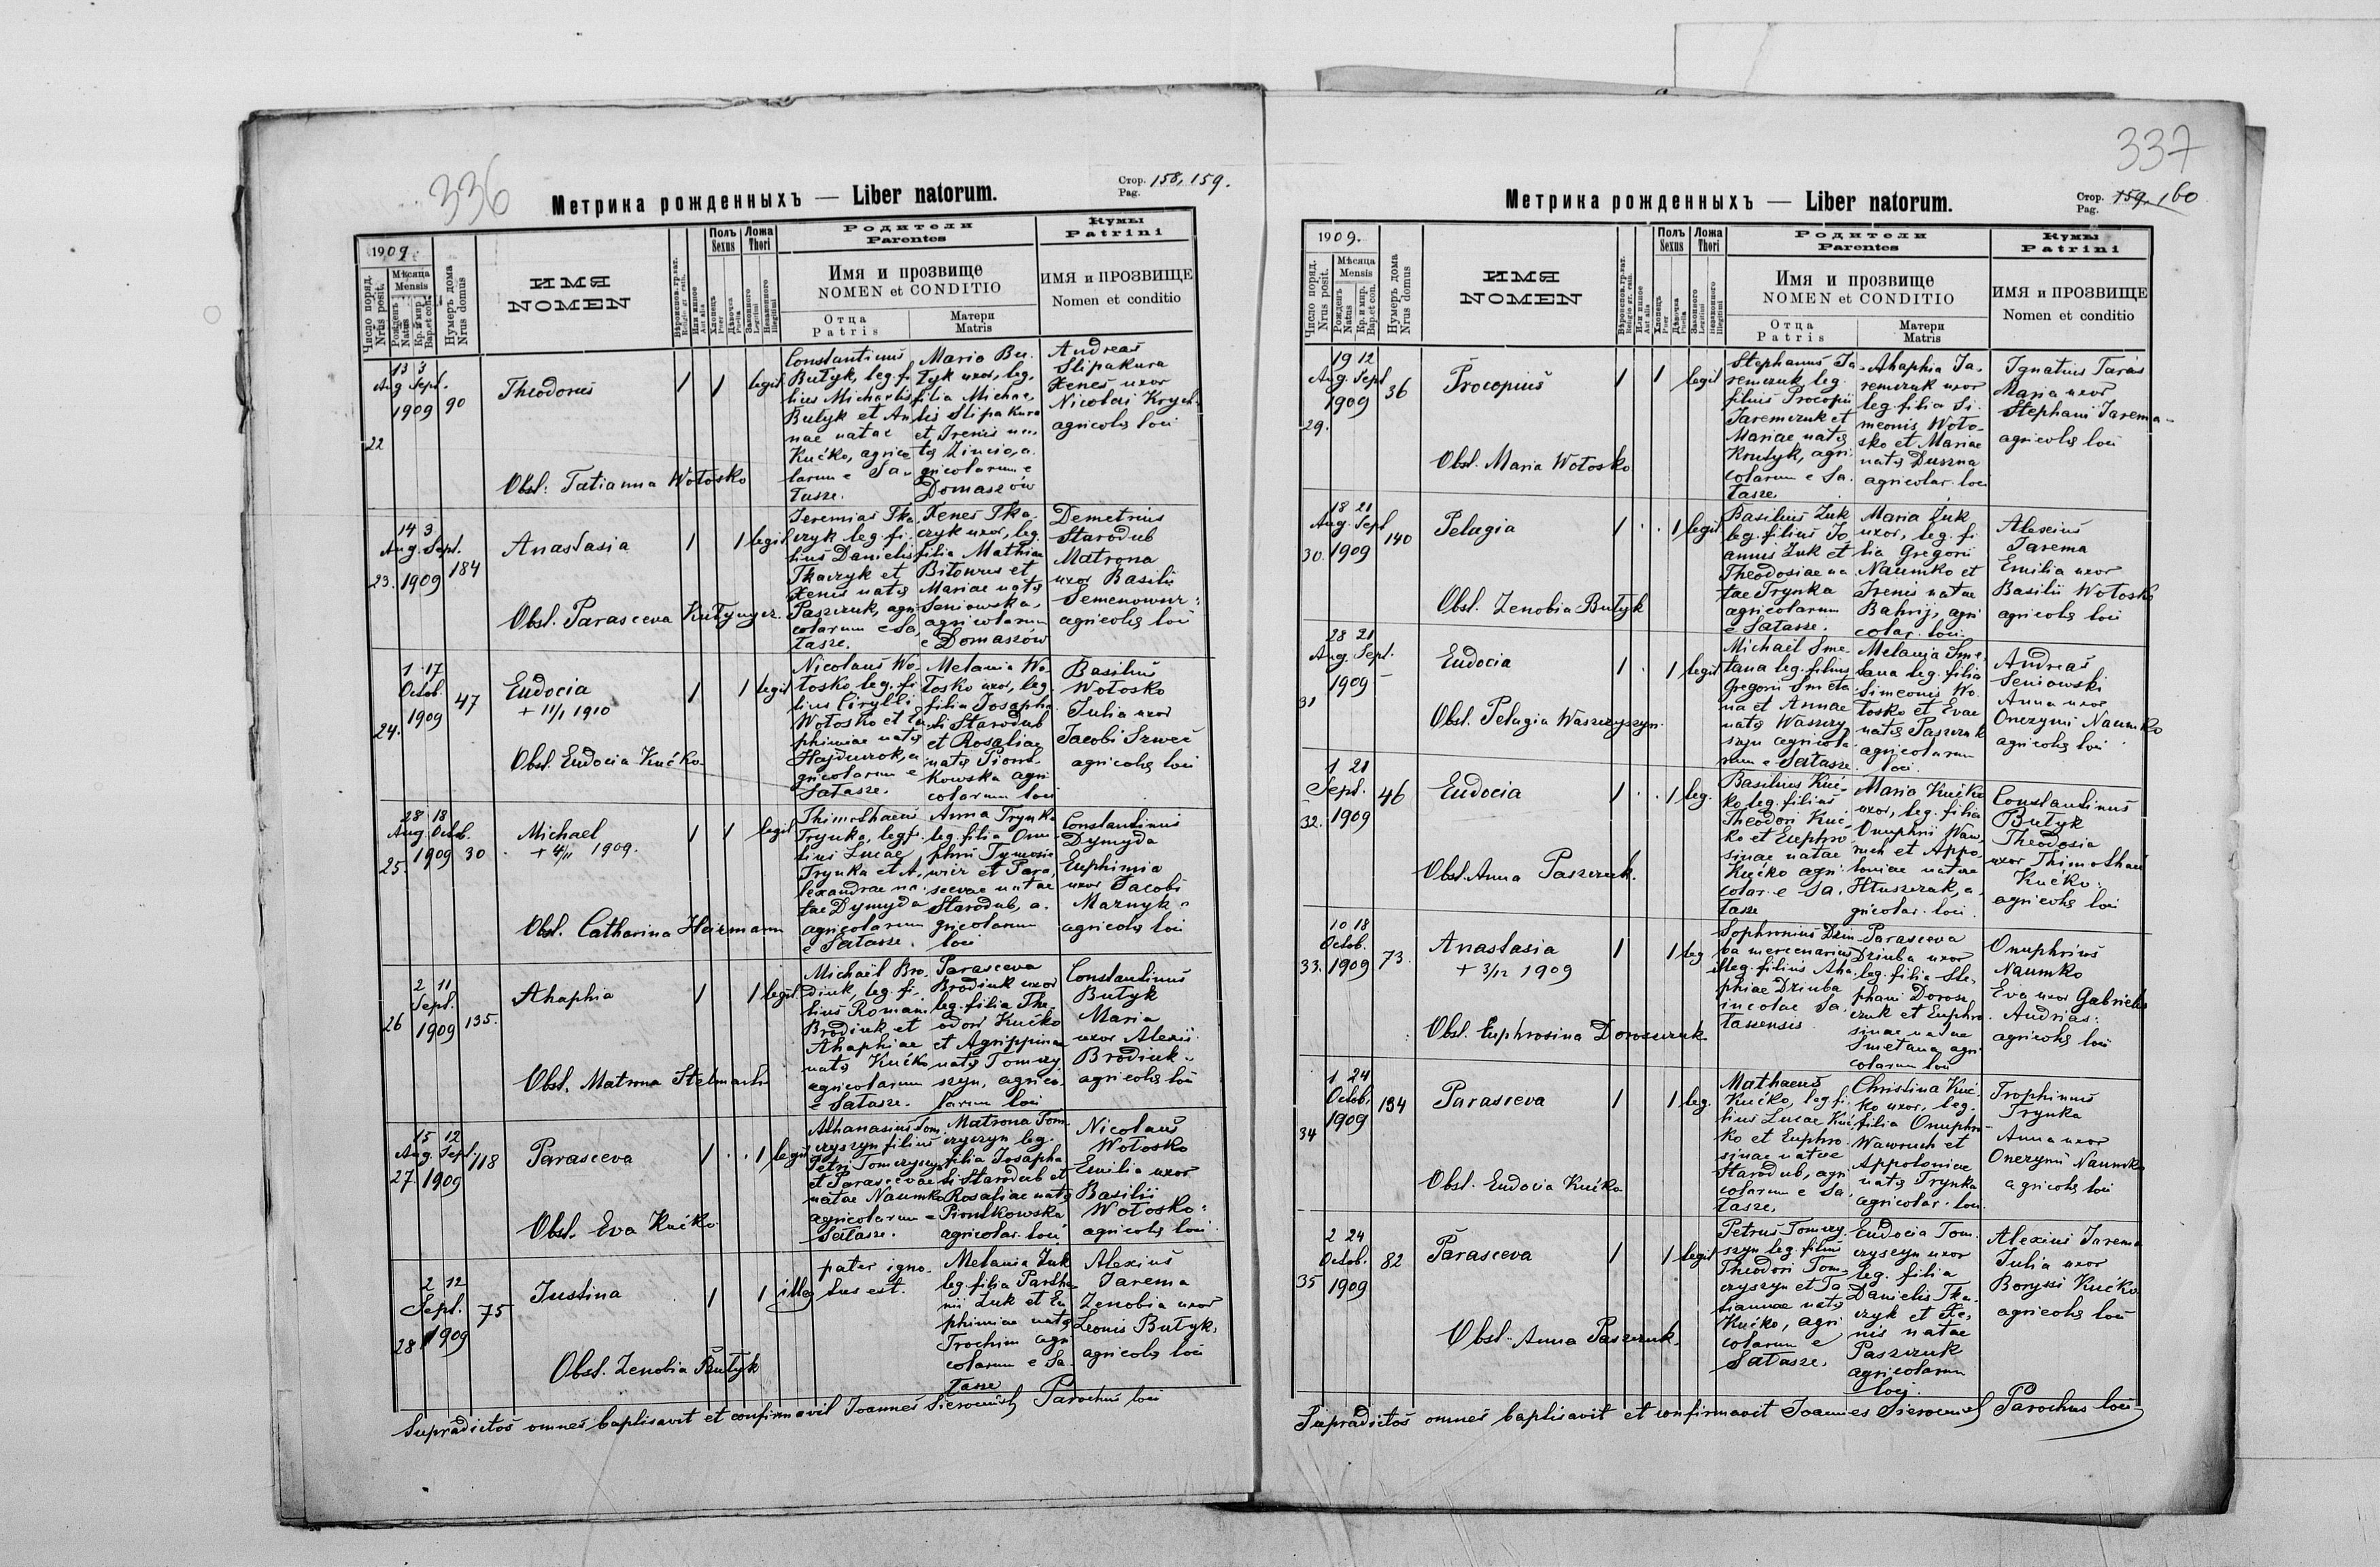 336
Метрика рожденныхъ — Liber natorum.
Стор. 158, 159.
Pag.
1909.
Число поряд.
Nrus posit.
Мѣсяца
Mensis
Рожденъ
Natus
Кр. и мир.
Bap. et con.
Нумеръ дома
Nrus domus
ИМЯ
NOMEN
Вѣроиспов. гр. кат.
Religio gr. cath.
Или инное
Aut alia
Полъ
Sexus
Хлопецъ
Puer
Дѣвочка
Puella
Ложа
Thori
Законного
Legitimi
Незаконного
Illegitimi
Родители
Parentes
Имя и прозвище
NOMEN et CONDITIO
Отца
Patris
Матери
Matris
Кумы
Patrini
ИМЯ и ПРОЗВИЩЕ
Nomen et conditio
22
13 3
Aug. Sept.
1909
90
Theodorus
1 1 legit
Obst: Tatianna Wołosko
Constantinus
Butyk, leg. fi
lius Michaelis
Butyk et An
nae natae
Kućko, agrico
larum e Sa
łasze.
Maria Bu
tyk uxor, leg.
filia Michae
lis Slipakura
et Irenis na
tae Zincio, a
gricolarum e
Domaszów
Andreas
Slipakura
Xenes uxor
Nicolai Krych
agricolis loci
23.
14 3
Aug. Sept.
1909
184
Anastasia
1 1 legit
Obst. Parasceva
Jeremias Tka
czyk leg. fi
lius Danielis
Tkaczyk et
Xenis natis
Paszczuk, agri
colarum e Sa
łasze.
Xenes Tka
czyk uxor, leg.
filia Mathiae
Bitowus et
Mariae natis
Seniowska,
agricolarum
e Domaszów
Demetrius
Starodub
Matrona
uxor Basilii
Semenowicz:
agricolis loci
24.
1 17
Octob.
1909
47
Eudocia
+ 11/1 1910
1 1 legit
Obst. Eudocia Kućko
Nicolaus Wo
łosko leg. fi
lius Cirylli
Wołosko et Eu
phimiae natis
Hajduczok, a
gricolarum e
Sałasze.
Melania Wo
łosko uxor, leg.
filia Josapha
ti Starodub
et Rosaliae
natis Piont
kowska agri
colarum loci
Basilius
Wołosko
Julia uxor
Jacobi Szweć
agricolis loci
25.
28 18
Aug. Octob.
1909
30
Michael
+ 4/11 1909.
1 1 legit
Obst. Catharina Heizmann
Thimothaeus
Trynka, leg. f.
lius Lucae
Trynka et A
lexandrae na
tae Dymyda
agricolarum
e Sałasze.
Anna Trynka
leg. filia Onu
phrii Tymosie
wicz et Para
scevae natae
Starodub, a
gricolarum
loci
Constantinus
Dymyda
Euphimia
uxor Jacobi
Maznyk
agricolis loci
26
2 11
Sept.
1909
135.
Ahaphia
1 1 legit.
Obst. Matrona Stelmach
Michaël Bro
diuk, leg. fi
lius Romani
Brodiuk et
Ahaphiae
natis Kućko
agricolarum
e Sałasze.
Parasceva
Brodiuk uxor
leg. filia The
odori Kućko
et Agrippinae
natis Tomczy
szyn, agrico
larum loci
Constantinus
Butyk
Maria
uxor Alexii
Brodiuk
agricolis loci
27.
15 12
Aug. Sept.
1909
118
Parasceva
1 1 legit
Obst. Eva Kućko
Athanasius Tom
czyszyn filius
Petri Tomczyszyn
et Parascevae
natae Naumko
agricolarum e
Sałasze.
Matrona Tom
czyszyn leg.
filia Josapha
ti Starodub et
Rosaliae natis
Piontkowska
agricolar. loci
Nicolaus
Wołosko
Emilia uxor
Basilii
Wołosko
agricolis loci
28
2 12
Sept.
1909
75
Justina
1 1 illeg
Obst. Zenobia Butyk
pater igno
tus est.
Melania Zuk
leg. filia Parthe
nii Zuk et Eu
phimiae natis
Trochim agri
colarum e Sa
łasze
Alexius
Jarema
Zenobia uxor
Leonis Butyk,
agricolis loci
Supradictos omnes baptisavit et confirmavit Joannes Parochus loci
337
Метрика рожденныхъ — Liber natorum.
Стор. 159, 160
Pag.
1909.
Число поряд.
Nrus posit.
Мѣсяца
Mensis
Рожденъ
Natus
Кр. и мир.
Bap. et con.
Нумеръ дома
Nrus domus
ИМЯ
NOMEN
Вѣроиспов. гр. кат.
Religio gr. cath.
Или инное
Aut alia
Полъ
Sexus
Хлопецъ
Puer
Дѣвочка
Puella
Ложа
Thori
Законного
Legitimi
Незаконного
Illegitimi
Родители
Parentes
Имя и прозвище
NOMEN et CONDITIO
Отца
Patris
Матери
Matris
Кумы
Patrini
ИМЯ и ПРОЗВИЩЕ
Nomen et conditio
29.
19 12
Aug. Sept
1909
36
Procopius
1 1 legit
Obst. Maria Wołosko
Stephanus Ja
remczuk leg.
filius Procopii
Jaremczuk et
Mariae natis
Krutyk, agri
colarum e Sa
łasze
Ahaphia Ja
remczuk uxor
leg. filia Si
meonis Woło
sko et Mariae
natis Duszna
agricolar. loci
Ignatius Taras
Maria uxor
Stephani Jarema
agricolis loci
30.
18 21
Aug. Sept
1909
140
Pelagia
1 1 legit
Obst. Zenobia Butyk
Basilius Zuk
leg. filius Jo
annis Zuk et
Theodosiae na
tae Trynka
agricolarum
e Sałasze.
Maria Zuk
uxor, leg. fi
lia Gregorii
Naumko et
Irenis natae
Bahrij, agri
colar. loci.
Alexius
Jarema
Emilia uxor
Basilii Wołosko
agricolis loci
31
28 21
Aug. Sept.
1909
Eudocia
1 1 legit
Obst. Pelagia Waszczyszyn
Michaël Sme
tana leg. filius
Gregorii Smeta
na et Annae
natis Waszczy
szyn agricola
rum e Sałasze
Melania Sme
tana leg. filia
Simeonis Wo
łosko et Evae
natis Paszczuk
agricolarum
loci.
Andreas
Seniowski
Anna uxor
Onezymi Naumko
agricolis loci
32.
1 21
Sept.
1909
46
Eudocia
1 1 leg.
Obst. Anna Paszczuk.
Basilius Kuć
ko leg. filius
Theodori Kuć
ko et Euphro
sinae natae
Kućko agri
colar. e Sa
łasze
Maria Kućko
uxor, leg. filia
Onuphrii Waw
ruch et Appo
loniae natae
Hłuszczak, a
gricolar. loci.
Constantinus
Butyk
Theodosia
uxor Thimothaei
Kućko:
agricolis loci
33.
10 18
Octob.
1909
73.
Anastasia
+ 3/12 1909
1 1 leg
Obst. Euphrosina Doroszczuk
Sophronius Dziu
ba mercenarius
illeg. filius Aha
phiae Dziuba
incolae Sa
łaszensis
Parasceva
Dziuba uxor
leg. filia Ste
phani Dorosz
czuk et Euphro
sinae natae
Smetana agri
colarum loci
Onuphrius
Naumko
Eva uxor Gabrielis
Andrias:
agricolis loci
34
1 24
Octob.
1909
134
Parasceva
1 1 leg.
Obst. Eudocia Kućko
Mathaeus
Kućko, leg. fi
lius Lucae Kuć
ko et Euphro
sinae natae
Starodub, agri
colarum e Sa
łasze,
Christina Kuć
ko uxor, leg.
filia Onuphrii
Wawruch et
Appoloniae
natis Trynka
agricolar. loci
Trophimus
Trynka
Anna uxor
Onezymi Naumko
agricolis loci
35
2 24
Octob.
1909
82
Parasceva
1 1 legit
Obst. Anna Paszczuk.
Petrus Tomczy
szyn leg. filius
Theodori Tom
czyszyn et Ta
tiannae natis
Kućko, agri
colarum e
Sałasze,
Eudocia Tom
czyszyn uxor
leg. filia
Danielis Tka
czyk et Xe
nis natae
Paszczuk
agricolarum
loci.
Alexius Jarema
Julia uxor
Boryssi Kućko
agricolis loci
Supradictos omnes baptisavit et confirmavit Joannes Parochus loci